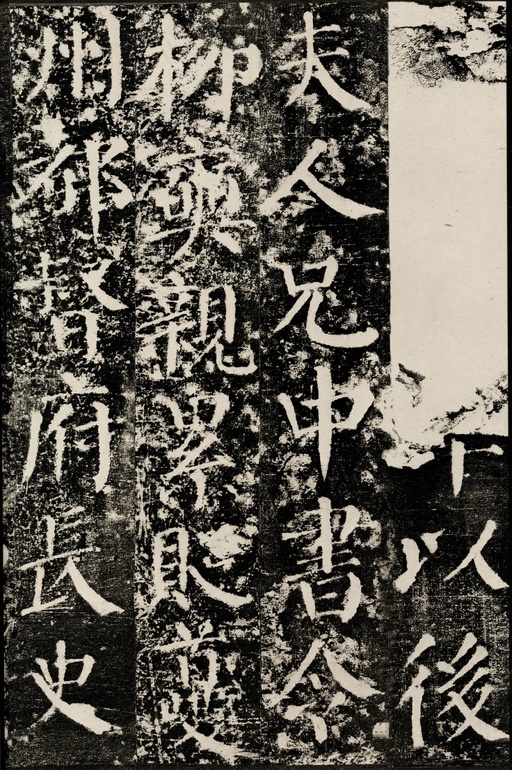 以後
夫人兄中書令
柳奭親累貶夔
州都督府長史